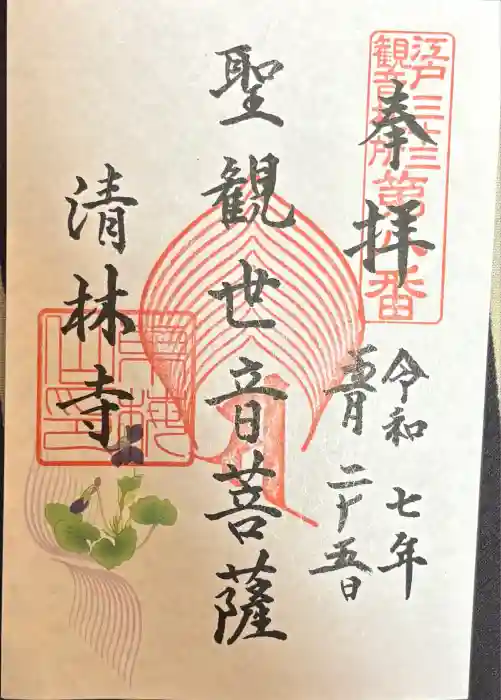 江戸三十三
観音札所第八番
奉拝
令和七年
五月二十五日
聖観世音菩薩
清林寺
東梅
山印